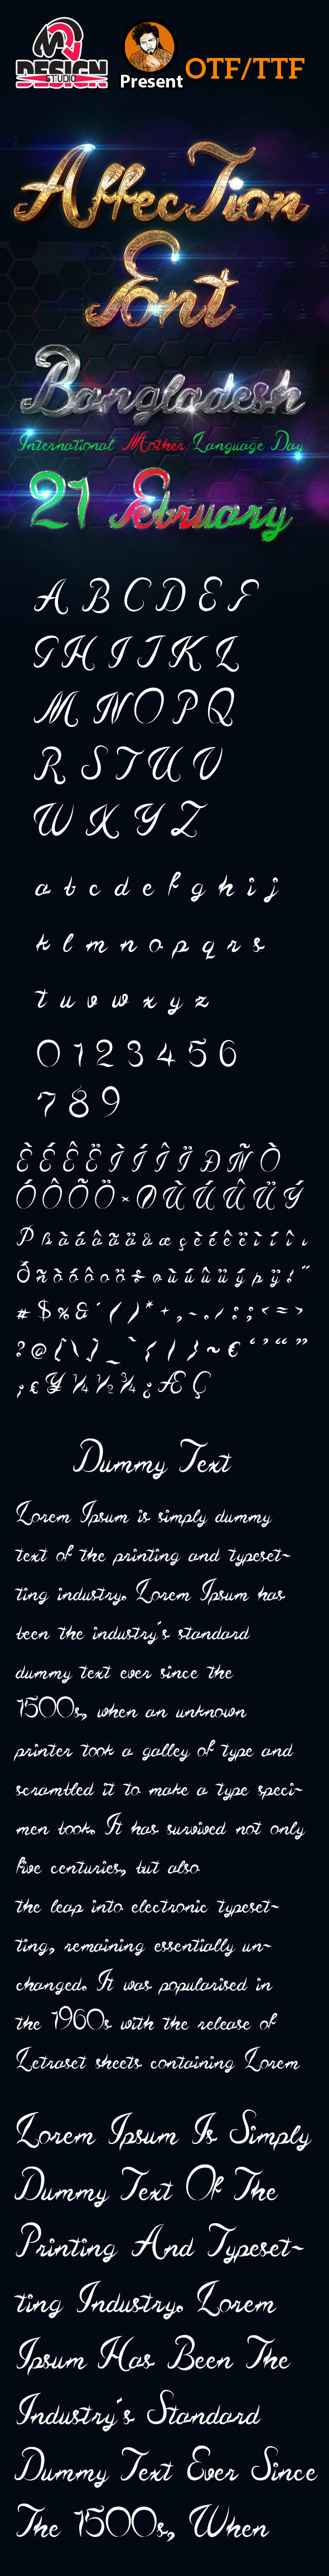 DESIGN
STUDIO
Present
OTF/TTF
Affection
Font
Bangladesh
International Mother Language Day
21 February
A B C D E F
G H I J K L
M N O P Q
R S T U V
W X Y Z
a b c d e f g h i j
k l m n o p q r s
t u v w x y z
0 1 2 3 4 5 6
7 8 9
È É Ê Ë Ì Í Î Ï Ð Ñ Ò
Ó Ô Õ Ö × Ø Ù Ú Û Ü Ý
Þ ß à á â ã ä å æ ç è é ê ë ì í î ï
ð ñ ò ó ô õ ö ÷ ø ù ú û ü ý þ ÿ ! "
# $ % & ' ( ) * + , - . / : ; < = >
? @ [ \ ] _ ` { | } ~ € ‘ ’ “ ”
¡ £ ¥ ¼ ½ ¾ ¿ Æ Ç
Dummy Text
Lorem Ipsum is simply dummy
text of the printing and typeset-
ting industry. Lorem Ipsum has
been the industry's standard
dummy text ever since the
1500s, when an unknown
printer took a galley of type and
scrambled it to make a type speci-
men book. It has survived not only
five centuries, but also
the leap into electronic typeset-
ting, remaining essentially un-
changed. It was popularised in
the 1960s with the release of
Letraset sheets containing Lorem
Lorem Ipsum Is Simply
Dummy Text Of The
Printing And Typeset-
ting Industry. Lorem
Ipsum Has Been The
Industry's Standard
Dummy Text Ever Since
The 1500s, When